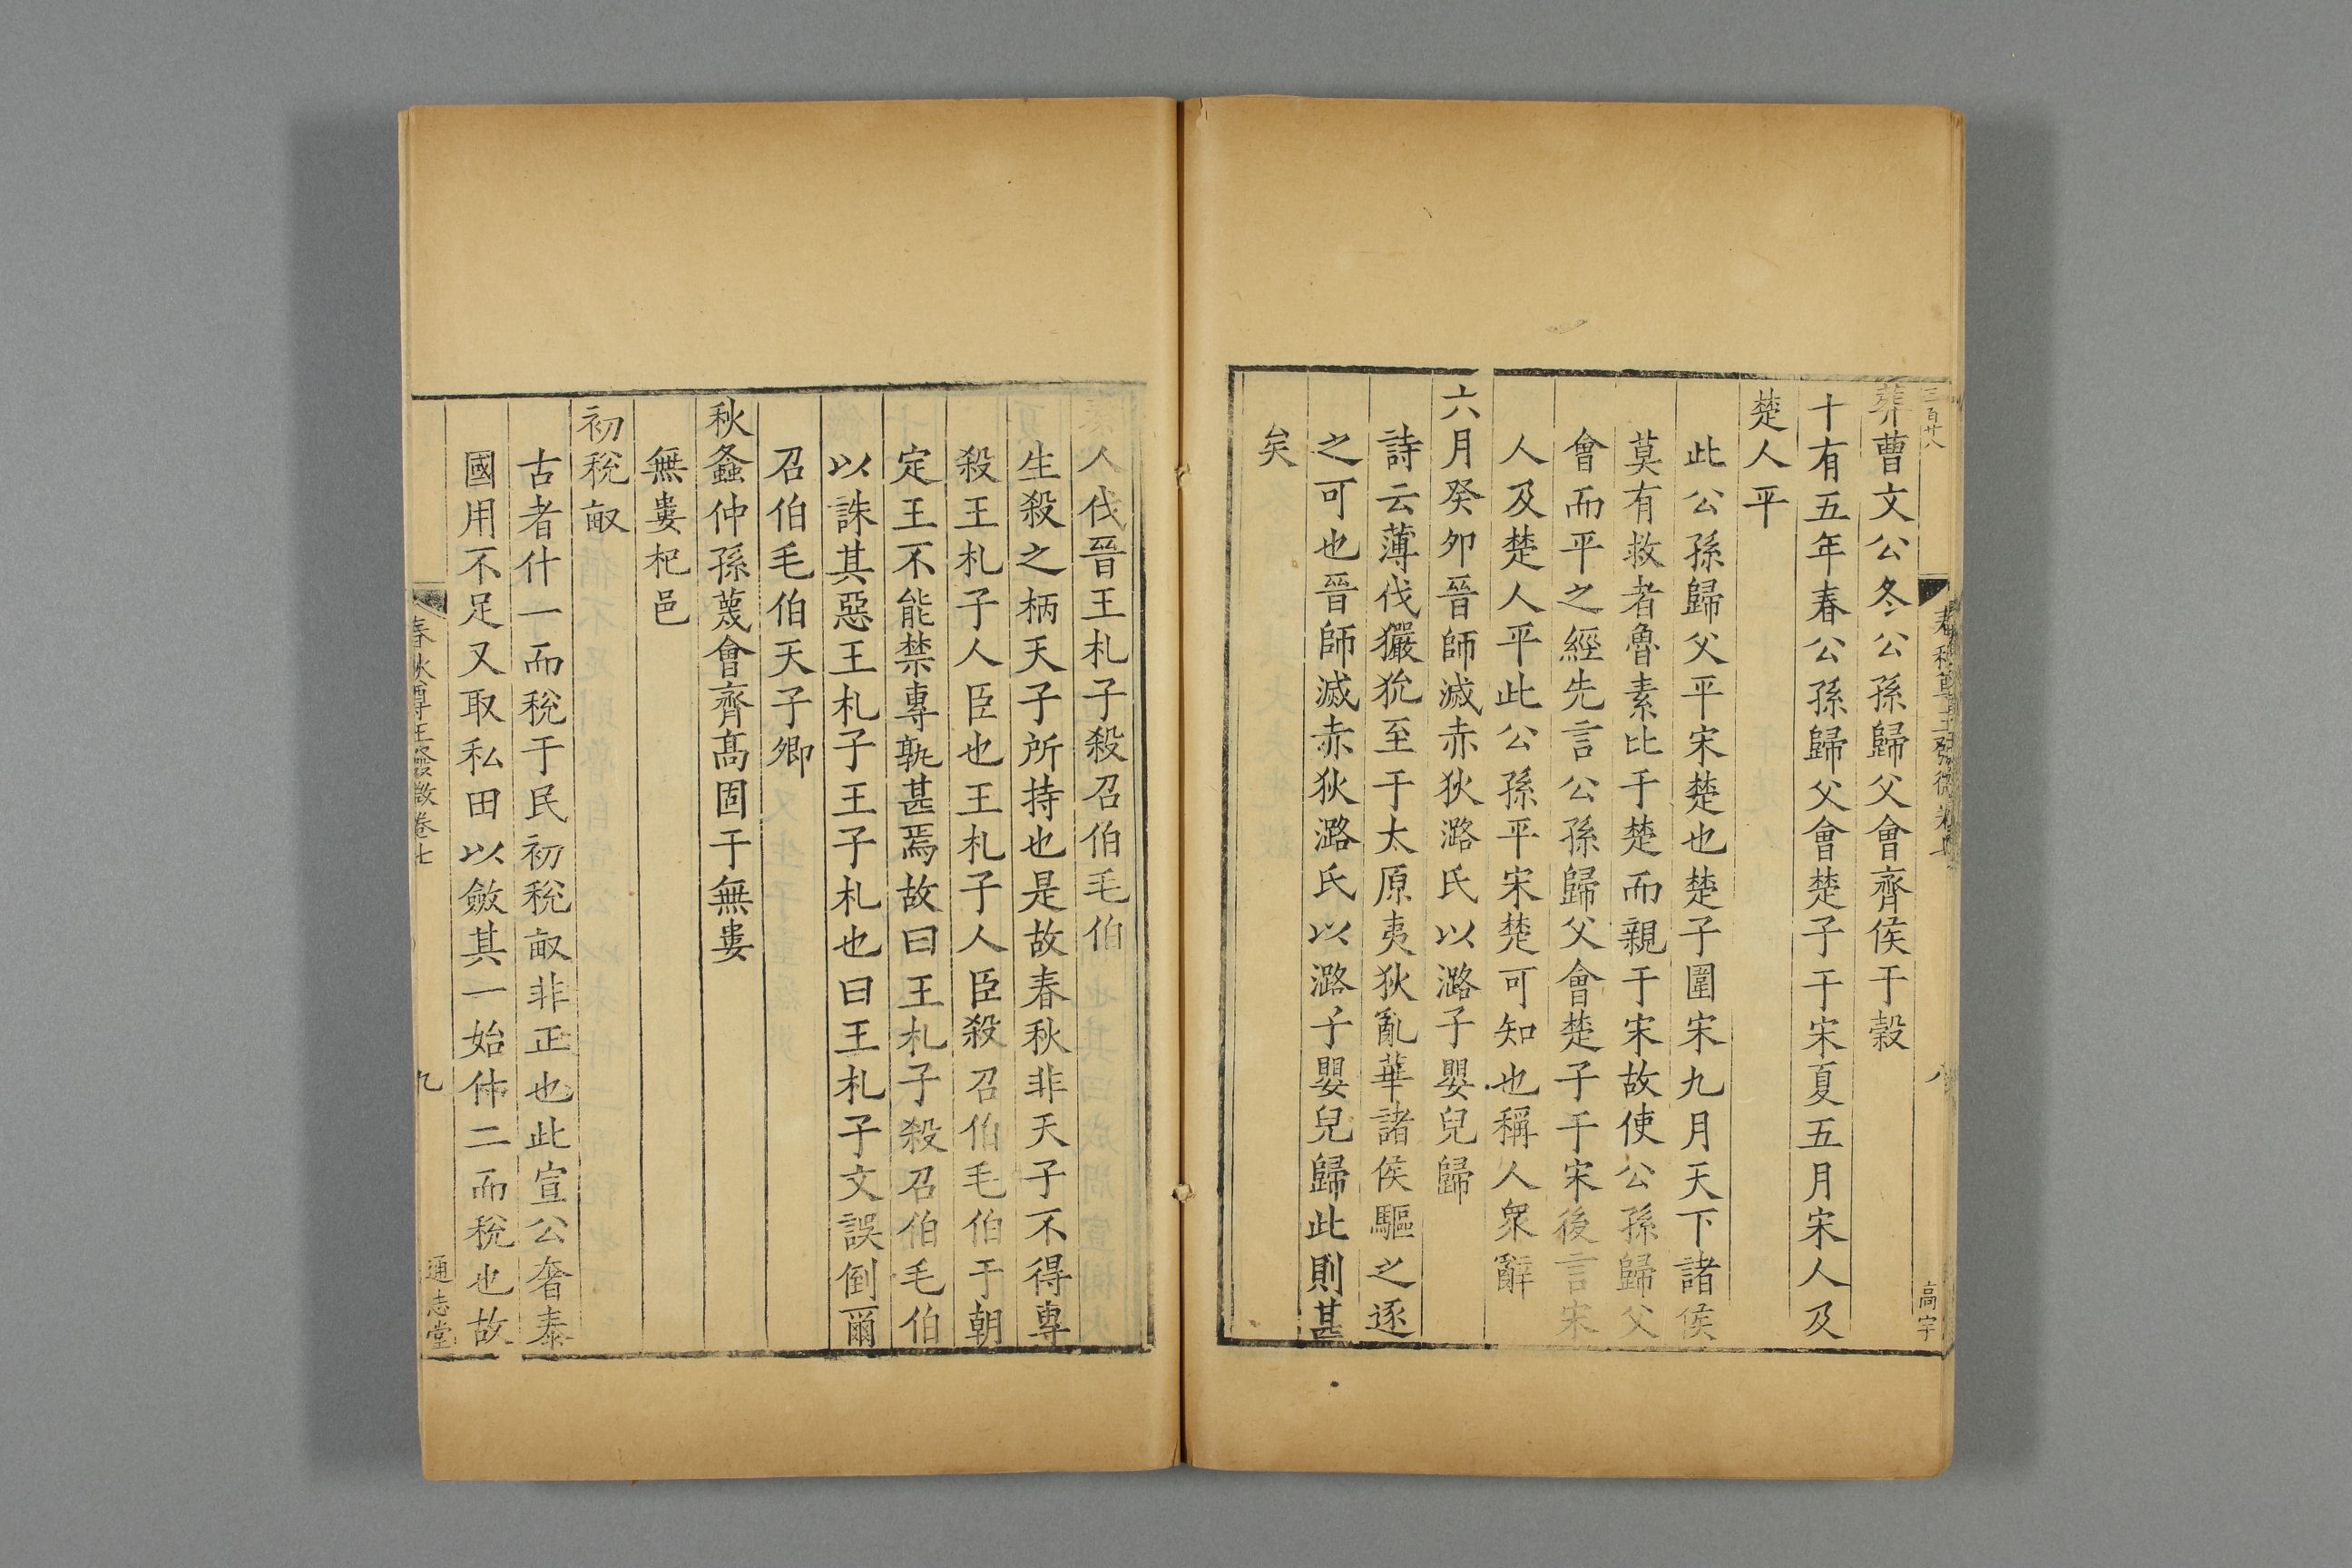 三百廿八
高宇
葬曹文公冬公孫歸父會齊侯于穀
十有五年春公孫歸父會楚子于宋夏五月宋人及
楚人平
此公孫歸父平宋楚也楚子圍宋九月天下諸侯
莫有救者魯素比于楚而親于宋故使公孫歸父
會而平之經先言公孫歸父會楚子于宋後言宋
人及楚人平此公孫平宋楚可知也稱人衆辭
六月癸卯晉師滅赤狄潞氏以潞子嬰兒歸
詩云薄伐玁狁至于太原夷狄亂華諸侯驅之逐
之可也晉師滅赤狄潞氏以潞子嬰兒歸此則甚
矣
秦人伐晉王札子殺召伯毛伯
生殺之柄天子所持也是故春秋非天子不得專
殺王札子人臣也王札子人臣殺召伯毛伯于朝
定王不能禁專孰甚焉故曰王札子殺召伯毛伯
以誅其惡王札子王子札也曰王札子文誤倒爾
召伯毛伯天子卿
秋螽仲孫蔑會齊高固于無婁
無婁杞邑
初稅畝
古者什一而稅于民初稅畝非正也此宣公奢泰
國用不足又取私田以斂其一始什二而稅也故
春秋尊王發微卷七
九
通志堂